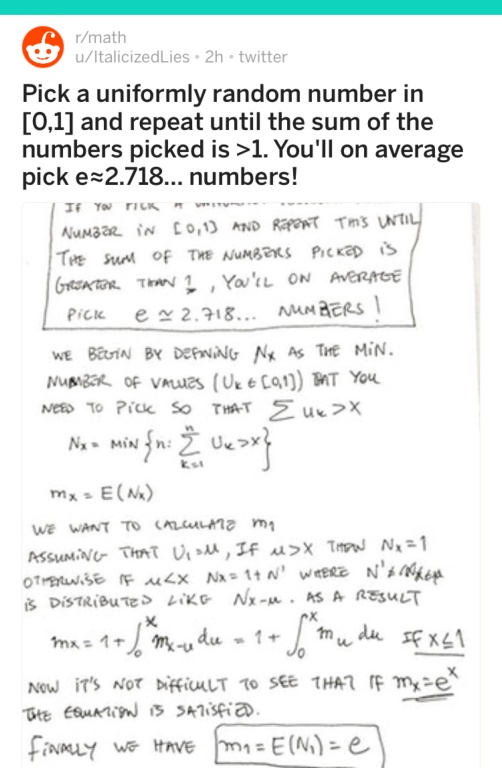 r/math
u/ItalicizedLies • 2h • twitter
Pick a uniformly random number in
[0,1] and repeat until the sum of the
numbers picked is >1. You'll on average
pick e≈2.718... numbers!
IF YOU PICK A
NUMBER IN [0,1] AND REPEAT THIS UNTIL
THE SUM OF THE NUMBERS PICKED IS
GREATER THAN 1, YOU'LL ON AVERAGE
PICK e ≃ 2.718... NUMBERS!
WE BEGIN BY DEFINING Nx AS THE MIN.
NUMBER OF VALUES (Uk ∈ [0,1]) THAT YOU
NEED TO PICK SO THAT ∑ uk > x
Nx = MIN {n: ∑ Uk > x}
n
k=1
mx = E(Nx)
WE WANT TO CALCULATE m1
ASSUMING THAT U1 = u, IF u > x THEN Nx = 1
OTHERWISE IF u < x Nx = 1 + N' WHERE N'
IS DISTRIBUTED LIKE Nx-u. AS A RESULT
mx = 1 + ∫₀ˣ mx-u du = 1 + ∫₀ˣ mu du IF x ≤ 1
NOW IT'S NOT DIFFICULT TO SEE THAT IF mx = eˣ
THE EQUATION IS SATISFIED.
FINALLY WE HAVE m1 = E(N1) = e